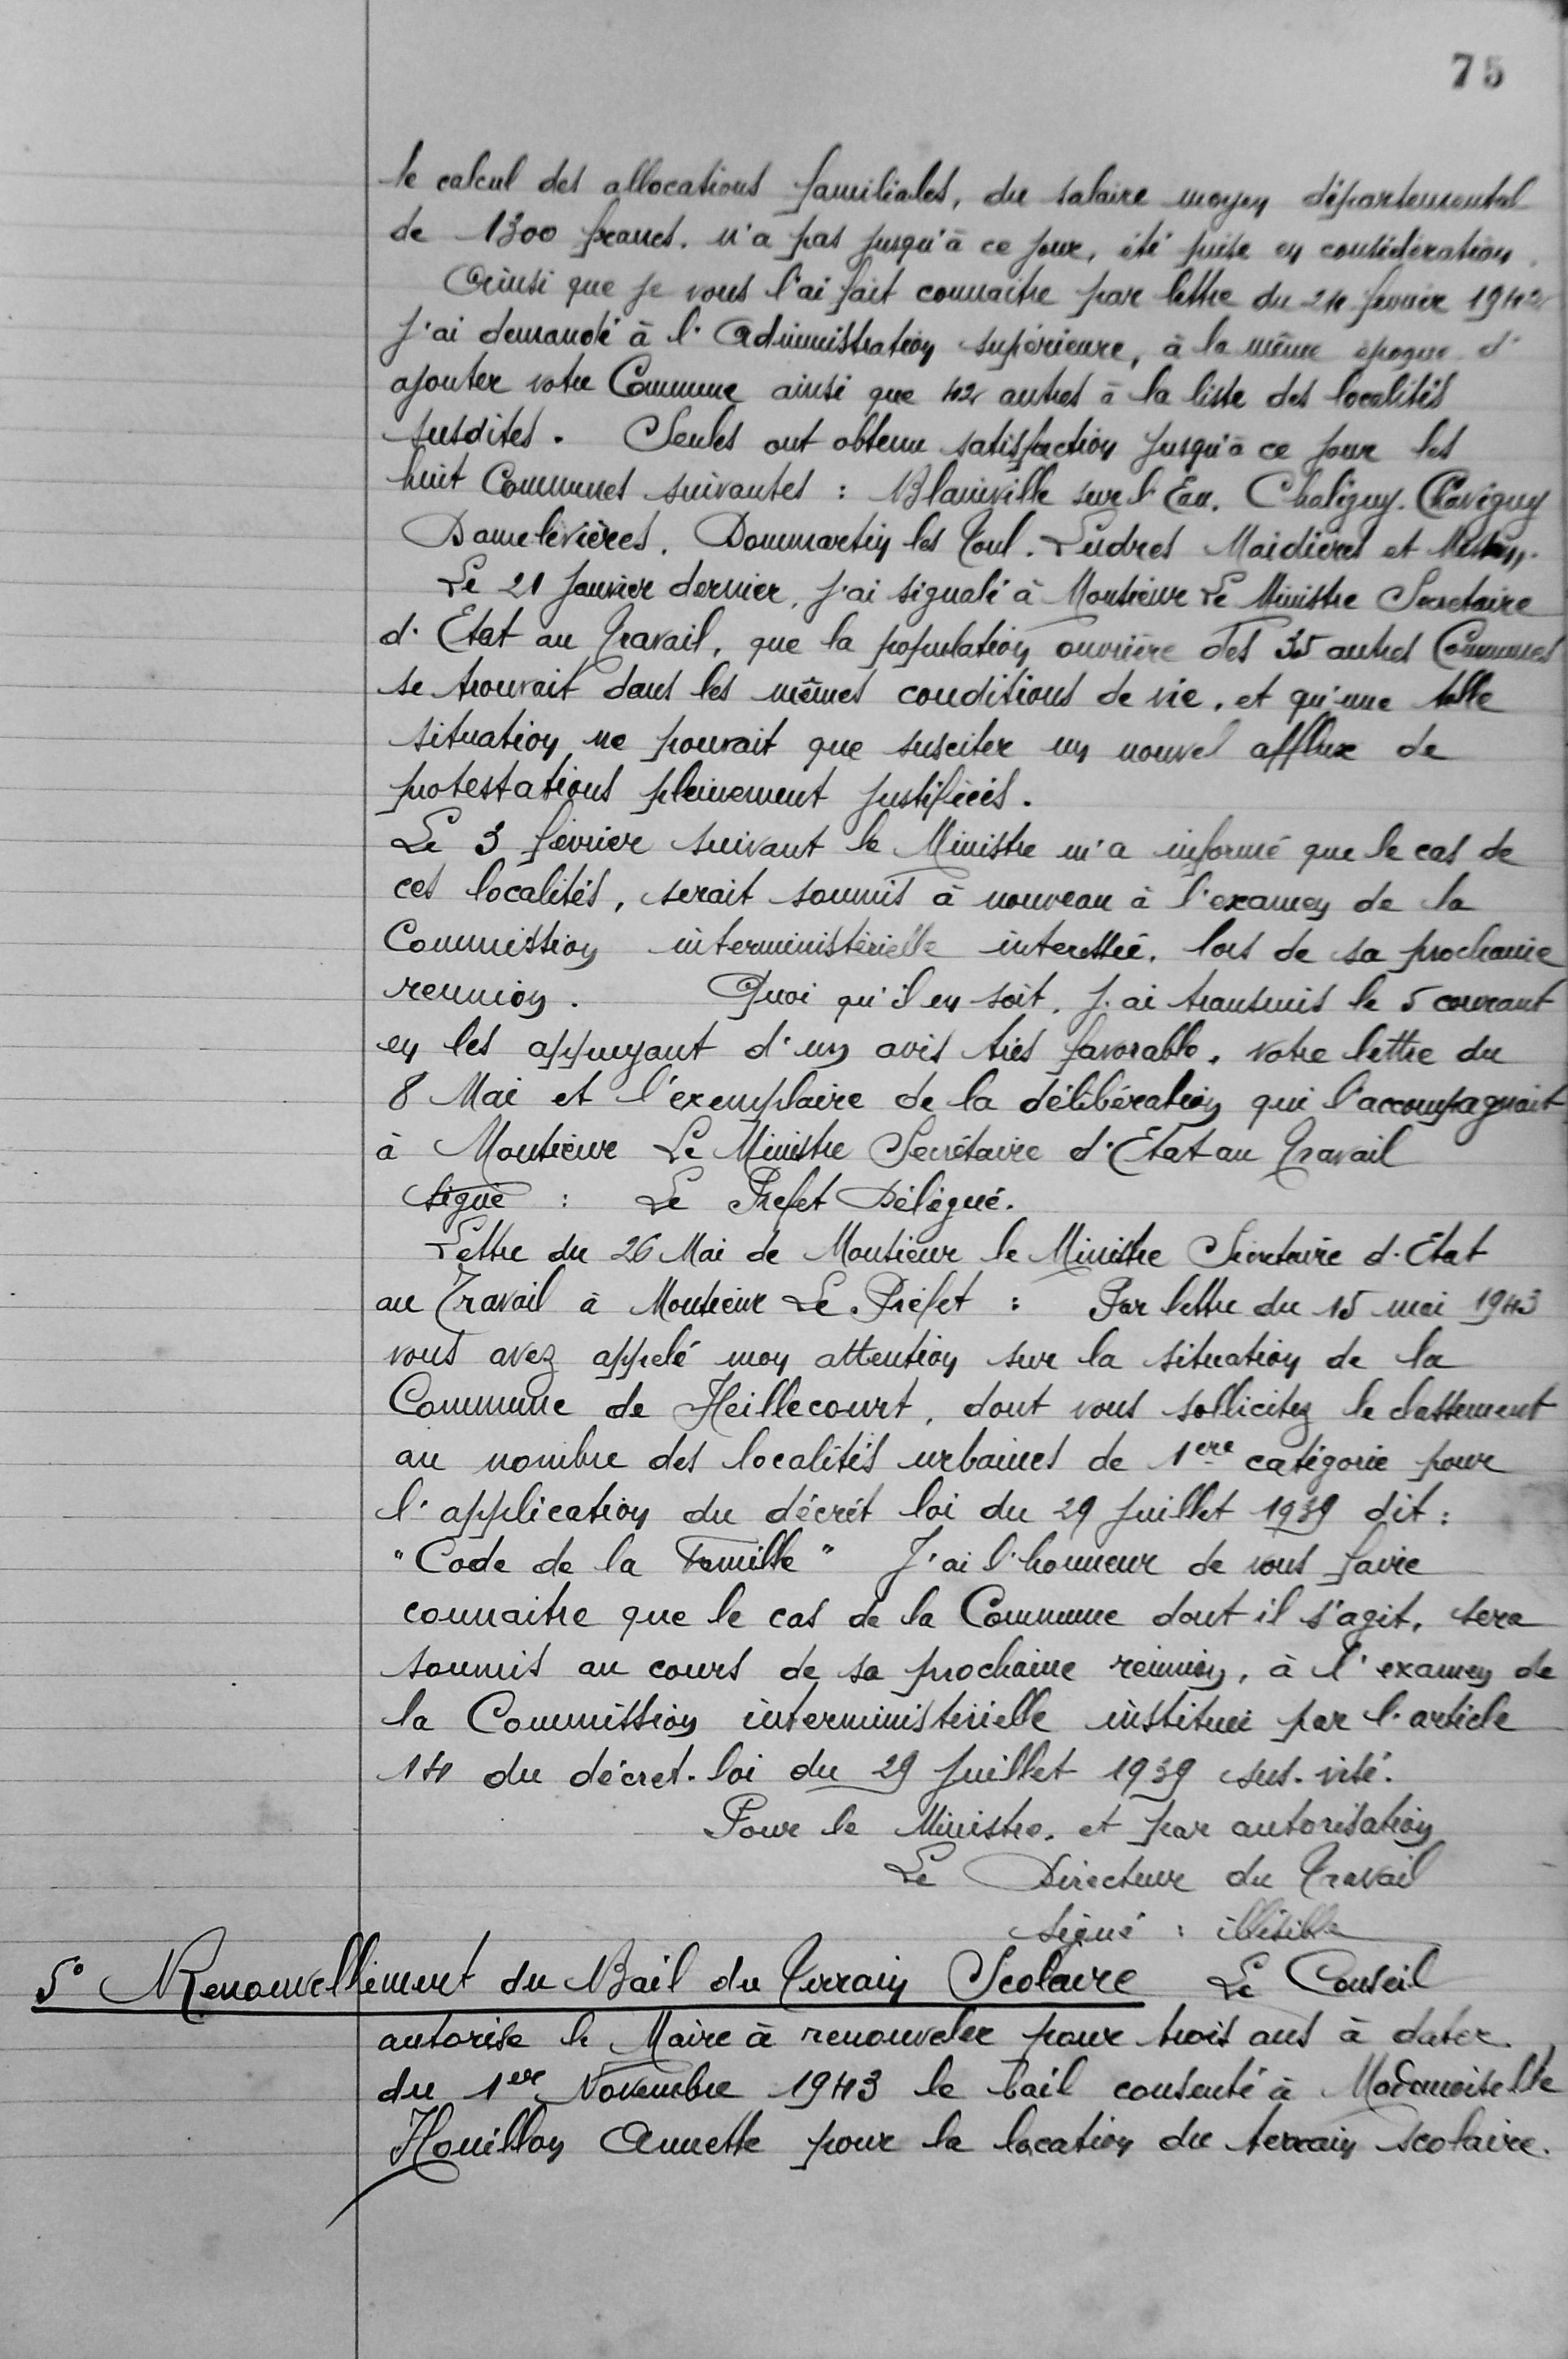 75
le calcul des allocations familiales, du salaire moyen départemental
de 1300 francs, n'a pas jusqu'à ce jour, été prise en considération.
Ainsi que je vous l'ai fait connaitre par lettre du 24 février 1942
j'ai demandé à l'Administration supérieure, à la même époque d'
ajouter votre Commune ainsi que 42 autres à la liste des localités
susdites. Seules ont obtenu satisfaction jusqu'à ce jour les
huit Communes suivantes : Blainville sur l'Eau. Chaligny. Chavigny
Damelevières. Dommartin les Toul. Ludres Maidières et
Le 21 janvier dernier, j'ai signalé à Monsieur Le Ministre Secretaire
d'Etat au Travail, que la population ouvrière des 35 autres Communes
se trouvait dans les mêmes conditions de vie, et qu'une telle
situation ne pouvait que susciter un nouvel afflux de
protestations pleinement justifiées.
Le 3 février suivant le Ministre m'a informé que le cas de
ces localités, serait soumis à nouveau à l'examen de la
Commission interministérielle interessée, lors de sa prochaine
reunion. Quoi qu'il en soit, j'ai transmis le 5 courant
en les appuyant d'un avis très favorable, votre lettre du
8 Mai et l'exemplaire de la délibération qui l'accompagnait
à Monsieur Le Ministre Secrétaire d'Etat au Travail
signé : Le Prefet Délégué.
Lettre du 26 Mai de Monsieur le Ministre Secretaire d'Etat
au Travail à Monsieur Le Préfet : Par lettre du 15 mai 1943
vous avez appelé mon attention sur la situation de la
Commune de Heillecourt, dont vous sollicitez le classement
au nombre des localités urbaines de 1ere catégorie pour
l'application du décrét loi du 29 juillet 1939 dit :
"Code de la Famille" J'ai l'honneur de vous faire
connaitre que le cas de la Commune dont il s'agit, sera
soumis au cours de sa prochaine reunion, à l'examen de
la Commission interministérielle instituée par l'article
14 du décret-loi du 29 juillet 1939 sus-visé.
Pour le Ministre, et par autorisation
Le Directeur du Travail
signé : illisible
5° Renouvellement du Bail du Terrain Scolaire Le Conseil
autorise le Maire à renouveler pour trois ans à dater
du 1er Novembre 1943 le bail consenté à Mademoiselle
Houillon Annette pour la location du terrain scolaire.